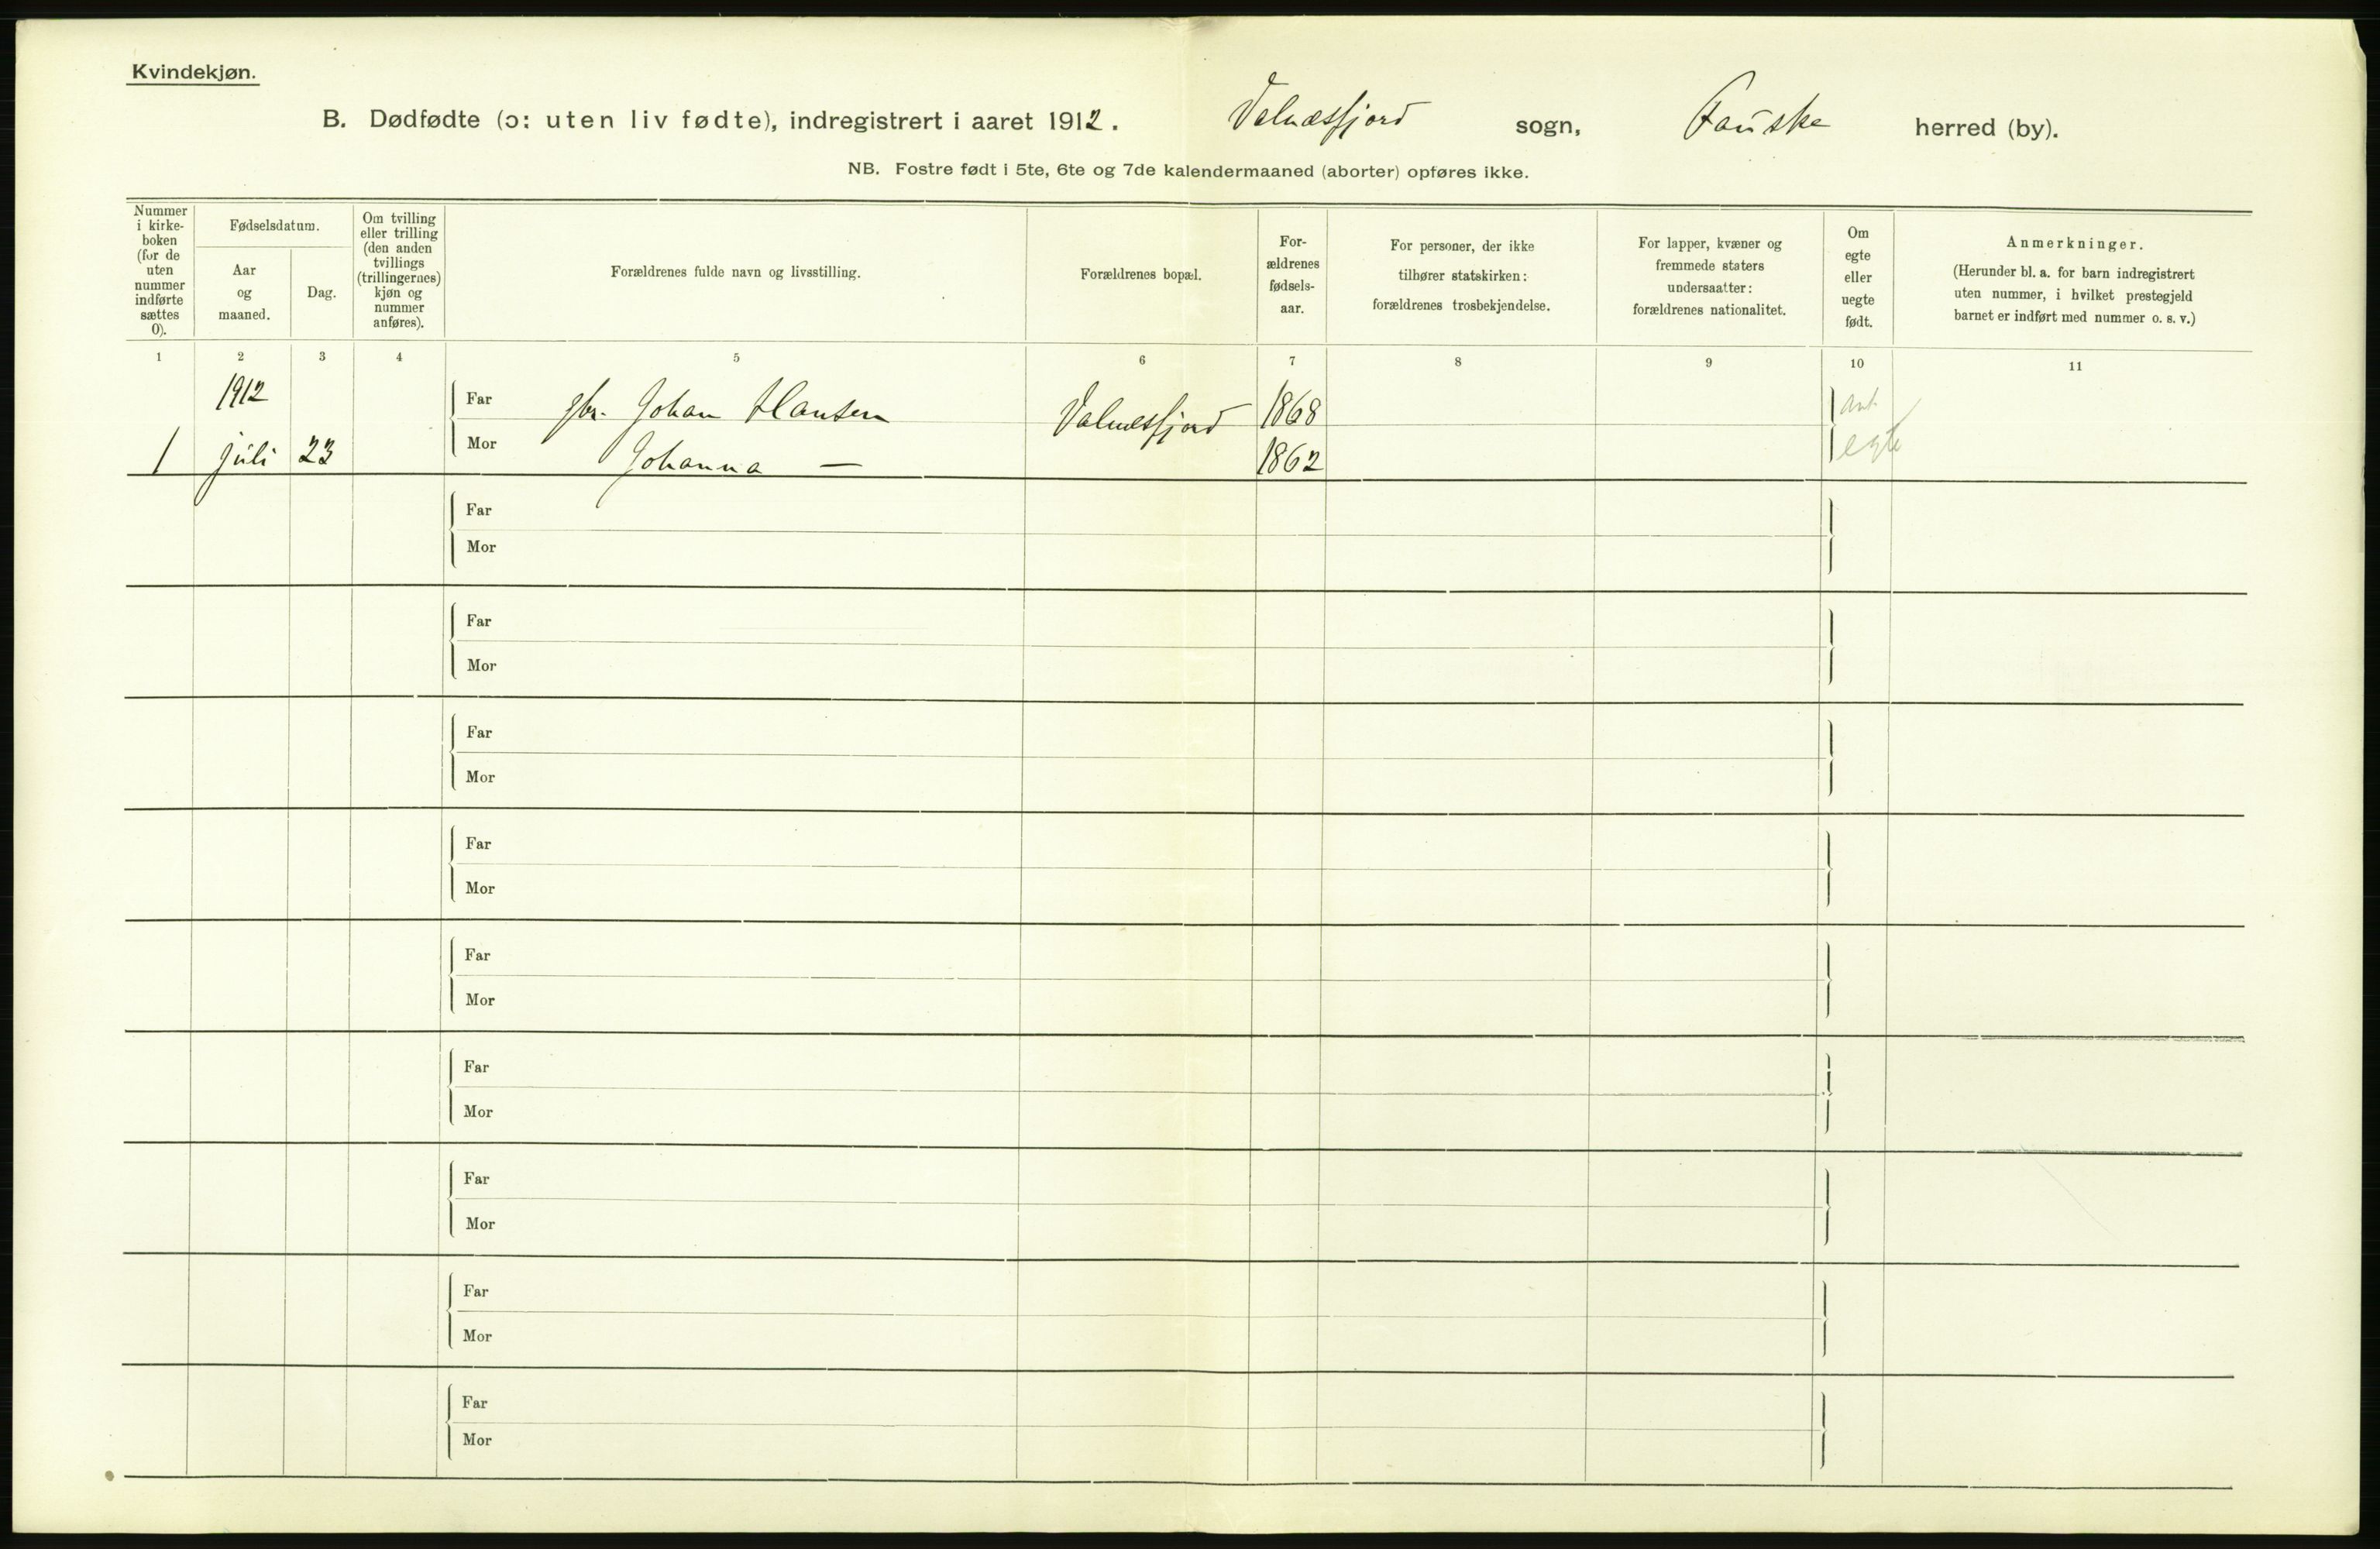 Kvindekjøn.
B. Dødfødte (ɔ: uten liv fødte), indregistrert i aaret 1912. Valnæsfjord sogn, Fauske herred (by).
NB. Fostre født i 5te, 6te og 7de kalendermaaned (aborter) opføres ikke.
Nummer
i kirke-
boken
(for de
uten
nummer
indførte
sættes
0).
Fødselsdatum.
Aar
og
maaned.
Dag.
Om tvilling
eller trilling
(den anden
tvillings
(trillingernes)
kjøn og
nummer
anføres).
Forældrenes fulde navn og livsstilling.
Forældrenes bopæl.
For-
ældrenes
fødsels-
aar.
For personer, der ikke
tilhører statskirken:
forældrenes trosbekjendelse.
For lapper, kvæner og
fremmede staters
undersaatter:
forældrenes nationalitet.
Om
egte
eller
uegte
født.
Anmerkninger.
(Herunder bl. a. for barn indregistrert
uten nummer, i hvilket prestegjeld
barnet er indført med nummer o. s. v.)
1 2 3 4 5 6 7 8 9 10 11
1912 Far gbr. Johan Hansen Valnæsfjord 1868 ant
1 juli 23 Mor Johanna — 1862 egte
Far
Mor
Far
Mor
Far
Mor
Far
Mor
Far
Mor
Far
Mor
Far
Mor
Far
Mor
Far
Mor